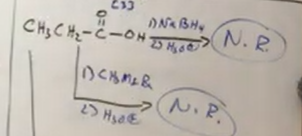 O
CH₃CH₂-C-OH 1) NaBH₄ N.R.
2) H₃O⊕
1) CH₃MgBr
2) H₃O⊕ N.R.